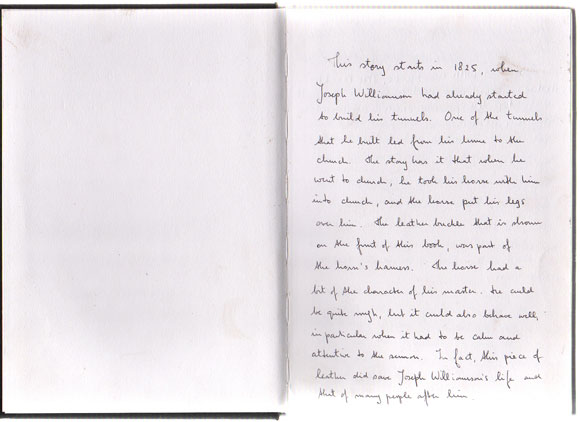 This story starts in 1825, when
Joseph Williamson had already started
to build his tunnels. One of the tunnels
that he built led from his home to the
church. The story has it that when he
went to church, he took his horse with him
into church, and the horse put his legs
over him. The leather buckle that is shown
on the front of this book, was part of
the horse's harness. The horse had a
bit of the character of his master. He could
be quite rough, but it could also behave well,
in particular when it had to be calm and
attentive to the sermon. In fact, this piece of
leather did save Joseph Williamson's life and
that of many people after him.